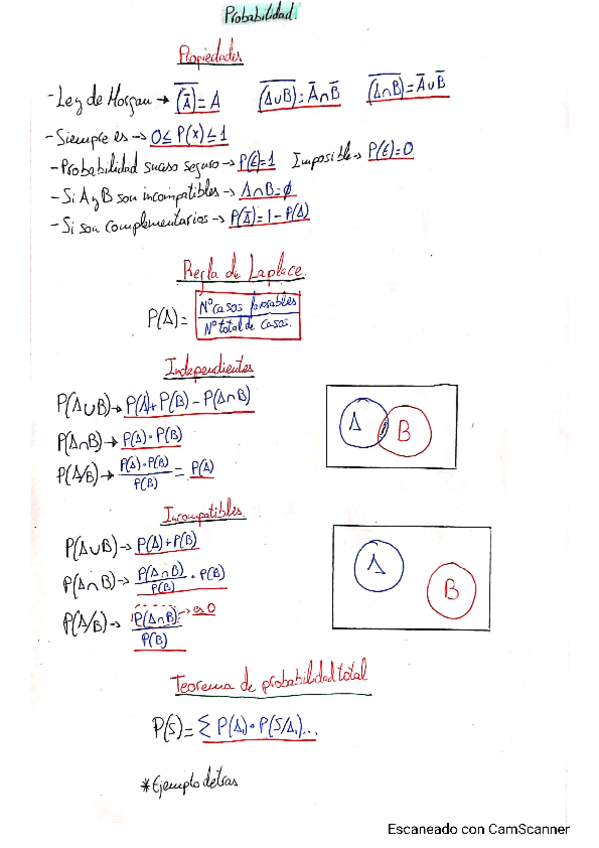 Probabilidad
Propiedades
-Ley de Morgan → (A̅)̅ = A (A∪B)̅ = A̅∩B̅ (A∩B)̅ = A̅∪B̅
-Siempre es → 0≤P(x)≤1
-Probabilidad suceso seguro → P(E)=1 Imposible→ P(E)=0
-Si A y B son incompatibles → A∩B=∅
-Si son complementarios → P(A̅)=1-P(A)
Regla de Laplace
P(A)= Nº casos favorables / Nº total de casos.
Independientes
P(A∪B)→ P(A)+P(B)-P(A∩B)
P(A∩B)→ P(A)·P(B)
P(A/B)→ P(A)·P(B) / P(B) = P(A)
A B
Incompatibles
P(A∪B)→ P(A)+P(B)
P(A∩B)→ P(A∩B) / P(B) · P(B)
P(A/B)→ P(A∩B) / P(B) → es 0
A
B
Teorema de probabilidad total
P(S)= ∑ P(A₁)·P(S/A₁)...
*Ejemplo detras
Escaneado con CamScanner